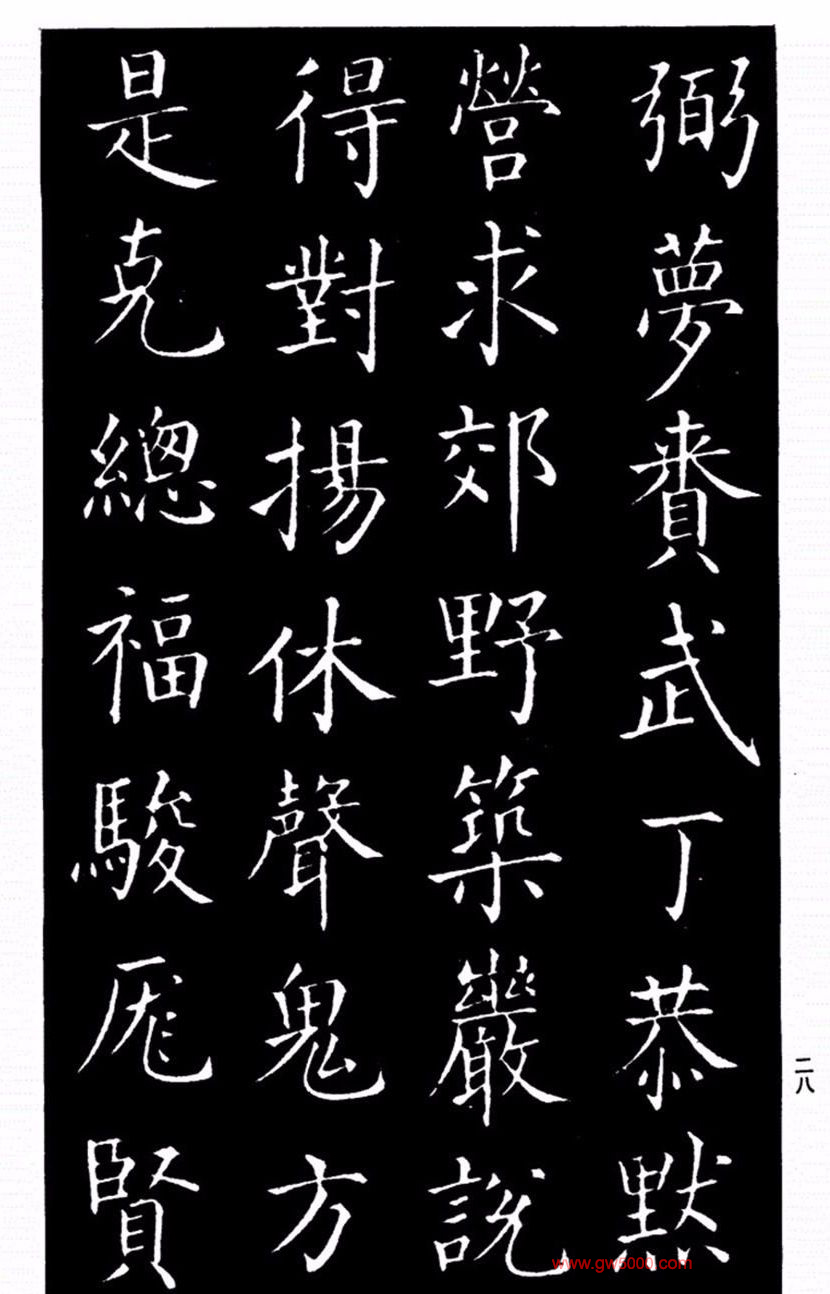 弼夢賚武丁恭默
營求郊野築巖說
得對揚休聲鬼方
是克總福駿厖賢
二八
www.gw5000.com